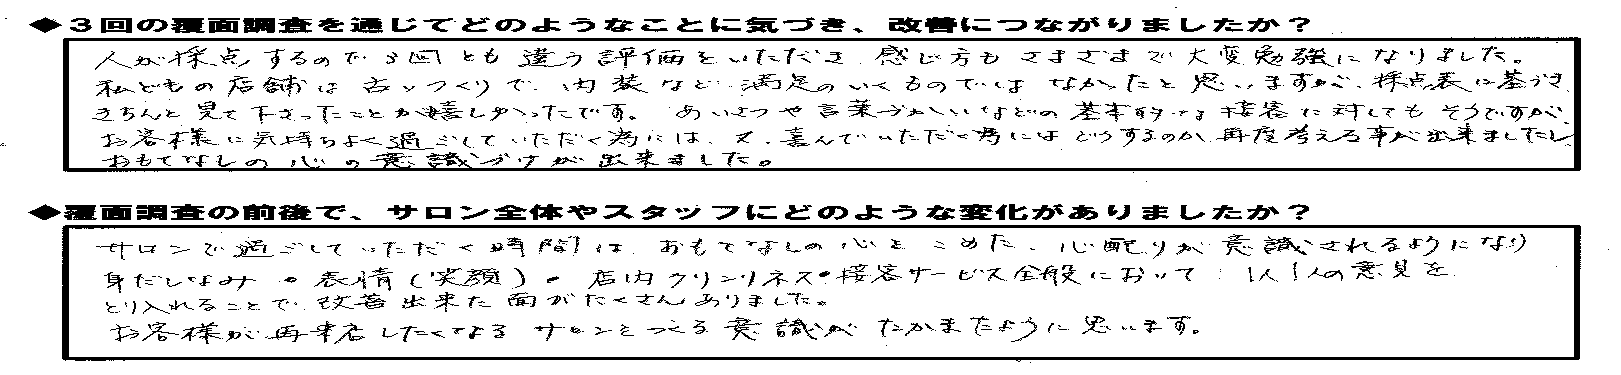 ◆3回の覆面調査を通じてどのようなことに気づき、改善につながりましたか？
人が採点するので3回とも違う評価をいただき 感じ方もさまざまで大変勉強になりました。
私どもの店舗は古いつくりで、内装など 満足のいくものではなかったと思いますが、採点表に基づき
きちんと見て下さったことが嬉しかったです。 あいさつや言葉づかいなどの基本的な接客に対しても そうですが、
お客様に気持ちよく過ごしていただく為には、又、喜んでいただく為にはどうするのか 再度考える事が出来ましたし
おもてなしの心の意識づけが出来ました。
◆覆面調査の前後で、サロン全体やスタッフにどのような変化がありましたか？
サロンで過ごしていただく時間は、おもてなしの心をこめた、心配りが意識されるようになり
身だしなみ・表情(笑顔)・店内クリンリネス・接客サービス全般において 1人1人の意見を
とり入れることで、改善出来た面がたくさんありました。
お客様が再来店したくなるサロンをつくる意識がたかまたように思います。